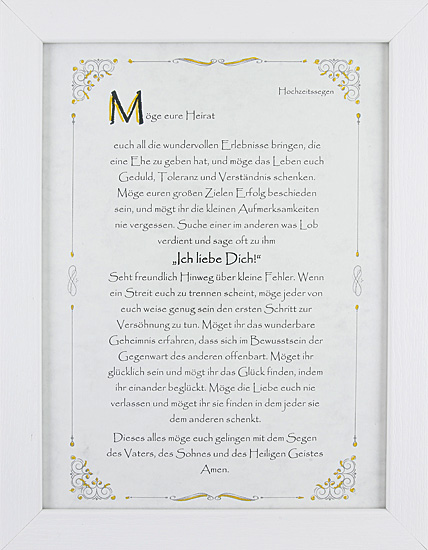 Hochzeitssegen
Möge eure Heirat
euch all die wundervollen Erlebnisse bringen, die
eine Ehe zu geben hat, und möge das Leben euch
Geduld, Toleranz und Verständnis schenken.
Möge euren großen Zielen Erfolg beschieden
sein, und mögt ihr die kleinen Aufmerksamkeiten
nie vergessen. Suche einer im anderen was Lob
verdient und sage oft zu ihm
„Ich liebe Dich!“
Seht freundlich Hinweg über kleine Fehler. Wenn
ein Streit euch zu trennen scheint, möge jeder von
euch weise genug sein den ersten Schritt zur
Versöhnung zu tun. Möget ihr das wunderbare
Geheimnis erfahren, dass sich im Bewusstsein der
Gegenwart des anderen offenbart. Möget ihr
glücklich sein und mögt ihr das Glück finden, indem
ihr einander beglückt. Möge die Liebe euch nie
verlassen und möget ihr sie finden in dem jeder sie
dem anderen schenkt.
Dieses alles möge euch gelingen mit dem Segen
des Vaters, des Sohnes und des Heiligen Geistes
Amen.